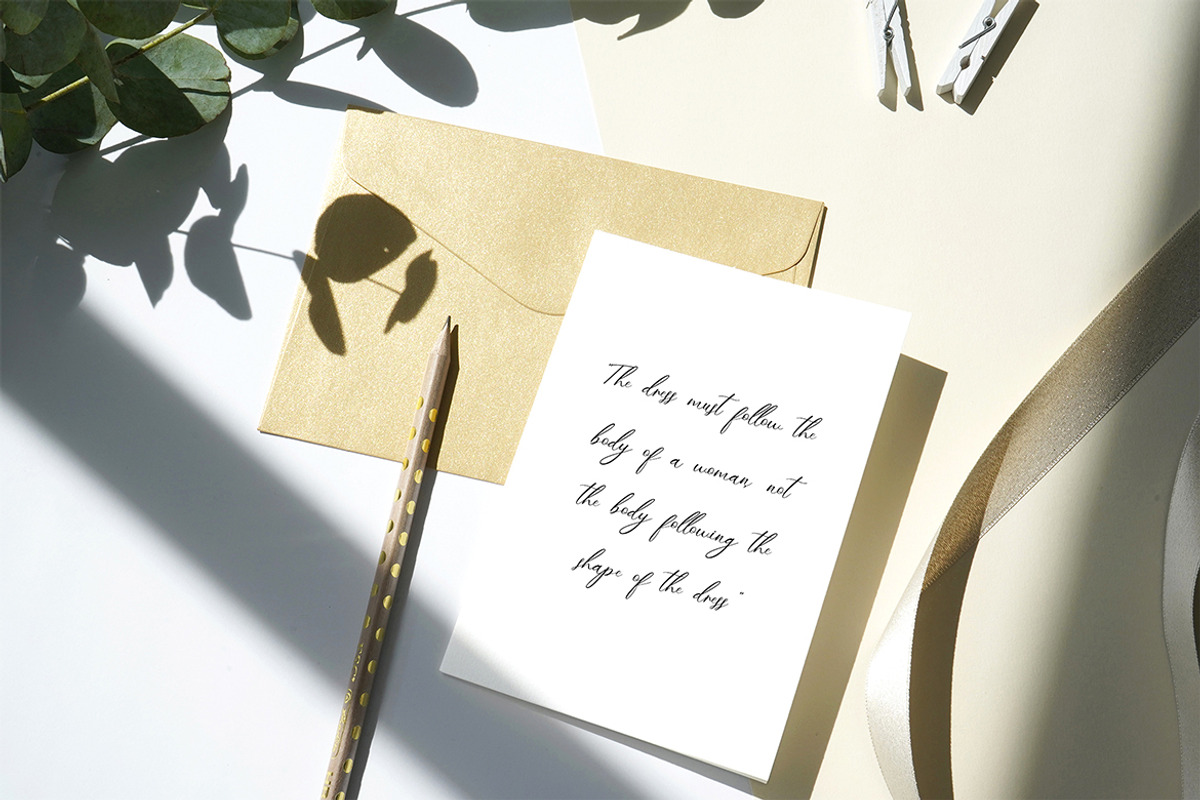 The dress must follow the
body of a woman, not
the body following the
shape of the dress"